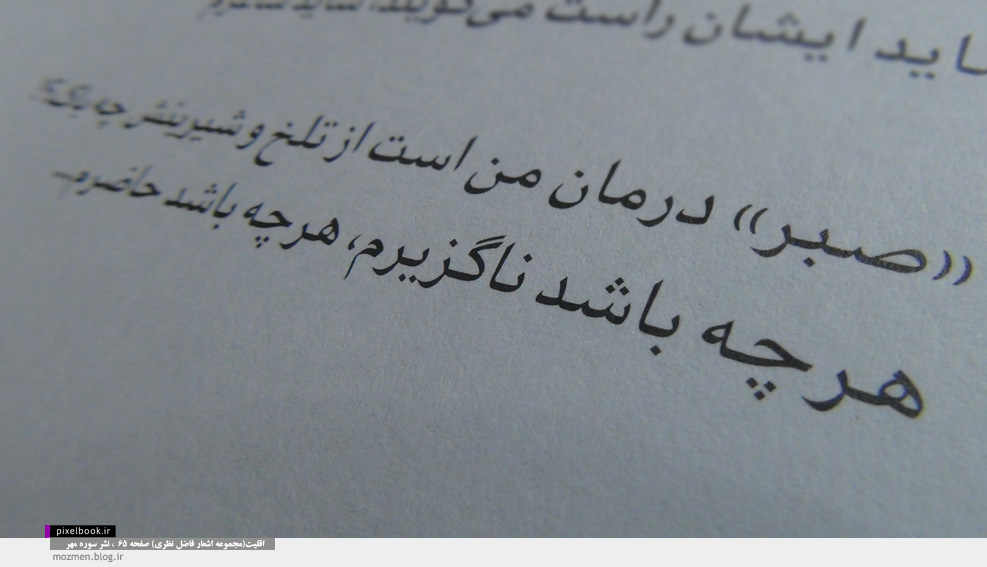 ـاید ایشان راست می‌گویند، شاید شاعرم
«صبر» درمان من است از تلخ و شیرینش چه باک؟
هرچه باشد ناگزیرم، هرچه باشد حاضرم...
pixelbook.ir
اقلیت(مجموعه اشعار فاضل نظری) صفحه ۶۵ ، نشر سوره مهر
mozmen.blog.ir